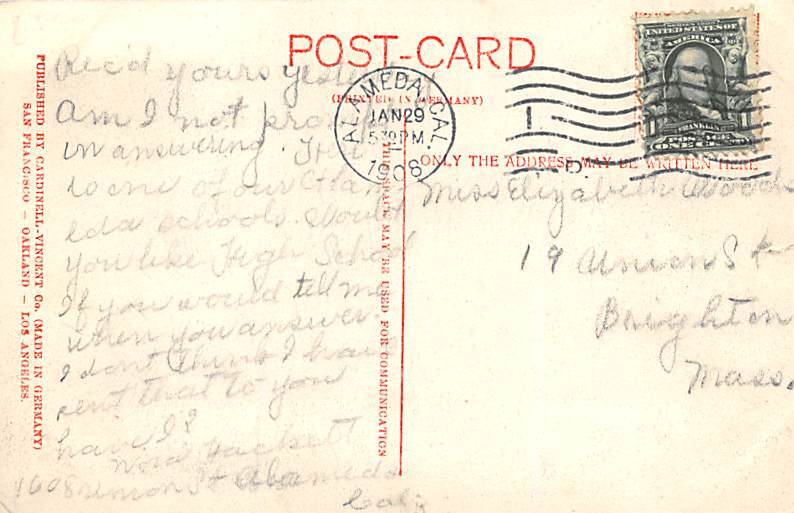 POST-CARD
(PRINTED IN GERMANY)
PUBLISHED BY CARDINELL-VINCENT Co. (MADE IN GERMANY)
SAN FRANCISCO — OAKLAND — LOS ANGELES.
THIS SPACE MAY BE USED FOR COMMUNICATION
ONLY THE ADDRESS MAY BE WRITTEN HERE
ALAMEDA, CAL.
JAN 29
5 30 PM
1908
UNITED STATES OF
AMERICA
FRANKLIN
ONE CENT
Rec'd yours yesterday
Am I not prompt
in answering. This
is one of our Alam-
eda schools. Would
you like High School
If you would tell me
when you answer.
I don't think I have
sent that to you
have I?
Hackett
St Alameda
Cal.
Miss Elizabeth Woods
19 Union St
Brighton
Mass.